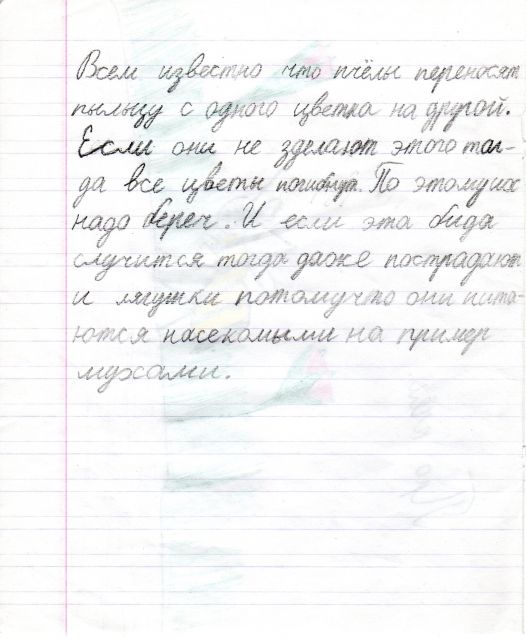 Всем известно что пчёлы переносят
пыльцу с одного цветка на другой.
Если они не зделают этого тог-
да все цветы погибнут. По этому их
надо береч. И если эта бида
случится тогда даже пострадают
и лягушки потомучто они пита-
ются насекомыми на пример
мухами.